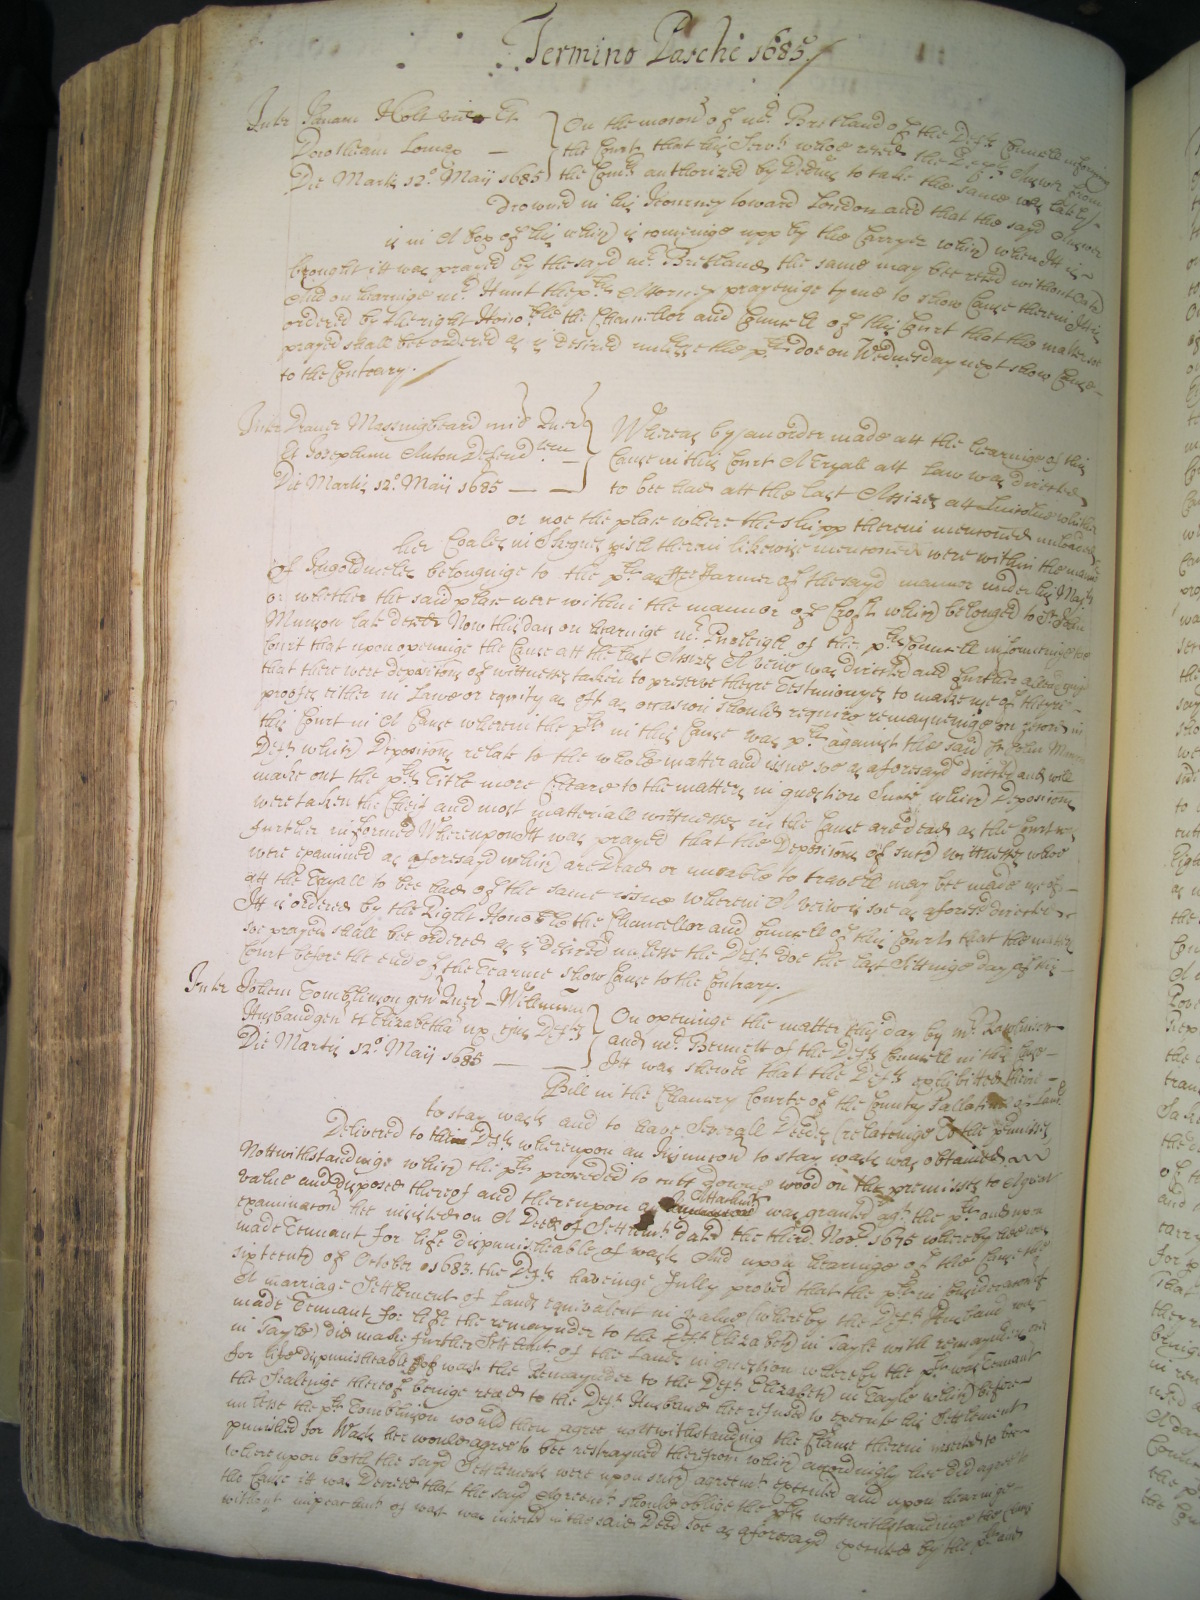 Termino Paschi 1685
Inter Janam Holt vid Et
Dorotheam Lomax —
Die Martis 12° Maij 1685
On the moion of mr. Bretland of the Defts Councell informing
the Court that his Servt whoe recd the Defts Answer from
the Comrs authorized by Dedus to take the same was lately
drowned in his Journey toward London and that the sayd Answer
is in A box of his which is cominge upp by the Carryer which when Itt is
brought itt was prayed by the sayd mr. Bretland the same may bee recd without Oath
And on hearinge mr. Hunt the plts Attorney prayeinge tyme to show Cause therein Itt is
ordered by the right Honoble the Chancellor and Councell of this Court that the matter soe
prayed shall bee ordered as is desired unlesse the plts doe on Wednesday next show Cause
to the Contrary.
Inter Draner Massingbeard mid Quer
Et Josephum Anton Defendtem
Die Martis 12° Maij 1685
Whereas by an order made att the hearinge of this
Cause in this Court A Tryall att Law was directed
to bee had att the last Assizes att Lincolne whether
or noe the place where the shipp therein mentioned unloaded
her Coales in Skegnes therein likewise mentioned were within the mannor
of Ingoldmells belonginge to the plt as the Farmer of the sayd mannor under his Maty
or whether the said place were within the mannor of Croft which belonged to Sr. John
Munson late decd Now this day on hearinge mr. Penleigh of the plts Councell informeinge the
Court that upon openinge the Cause att the last Assizes A veiw was directed and further alleadgeing
that there were depositions of wittnesses taken to preserve theyre Testimonyes to make use of theyre
proofes either in Lawe or equity as oft as occasion should require remayneinge on record in
this Court in A Cause wherein the plt in this Cause was plt against the said Sr John Munson
Deft which Depositions relate to the whole matter and issue soe as aforesayd directed and will
make out the plts Title more Cleare to the matters in question Since which Depositions
were taken the Cheif and most matteriall wittnesses in the Cause are dead as the Court was
further informed Whereupon Itt was prayed that the Depositions of such wittnesses whoe
were examined as aforesayd which are Dead or unable to travell may bee made use of
att the Tryall to bee had of the same issue wherein A veiw is soe as aforesd directed
Itt is ordered by the Right Honoble the Chancellor and Councell of this Court that the matter
soe prayed shall bee ordered as is desired unlesse the Deft doe the last Sittinge day of this
Court before the end of the Tearme show Cause to the Contrary.
Inter Johem Tomblinson gen Quer — Willimum
Husband gen et Elizabetha ux eius Defts
Die Martis 12° Maij 1685
On openinge the matter this day by mr. Rawlinson
and mr. Bennett of the Defts Councell in this Cause
Itt was shewed that the Defts exhibitted theire
Bill in the Chancery Courte of the County Pallatine of Lanc
to stay wast and to have Severall Deedes relateinge To the premisses
Delivered to Defts whereupon an Injuncion to stay wast was obtained
Nottwithstandinge which the plt proceeded to cutt downe wood on the premisses to A great
value and disposed thereof and thereupon an Attachmt was granted agt the plt and upon
examination hee insisted on A Deed of Settlemt dated the third Novr 1675 whereby hee was
made Tennant for life dispunisheable of wast And upon hearinge of the Cause the
sixteenth of October 1683. the Defts haveinge fully proved that the plt in consideration of
A marriage Settlement of Lands equivalent in value (whereby the Deft Husband was
made Tennant for life the remaynder to the Deft Elizabeth in Tayle with remaynder over
in Tayle) did make further Settlemt of the Lands in question whereby the plt was Tennant
for life dispunisheable of wast the Remaynder to the Deft Elizabeth in Tayle which before
the Sealeinge thereof beinge read to the Deft Husband hee refused to execute his Settlement
unlesse the plt Tomblinson would then agree nottwithstanding the Clause therein inserted to bee
punished for Wast hee would agree to bee restrayned therefrom which accordingly hee did agree to
whereupon both the sayd Settlemts were upon such agreemt executed and upon hearinge
the Cause itt was Decreed that the sayd Agreemt should oblige the plt nottwithstandinge the Clause
without impeachmt of wast was inserted in the said Deed soe as aforesayd executed by the plt and